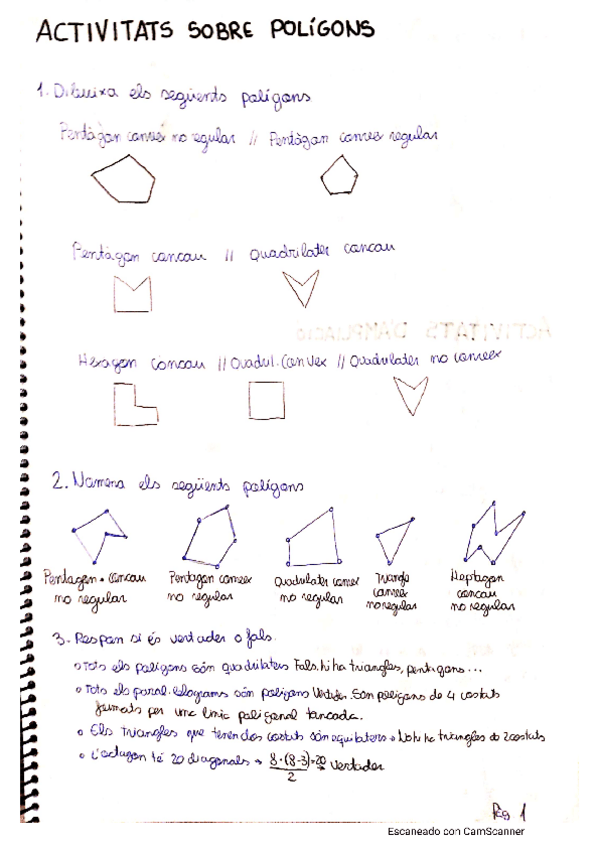 ACTIVITATS SOBRE POLÍGONS
1. Dibuixa els següents polígons
Pentàgon convex no regular // Pentàgon convex regular
Pentàgon concau // Quadrilater concau
Hexagon concau // Quadril. Convex // Quadrilater no convex
2. Nomena els següents polígons
Pentagon concau no regular
Pentagon convex no regular
Quadrilater convex no regular
Triangle convex no regular
Heptagon concau no regular
3. Respon si és vertader o fals.
Tots els polígons són quadrilaters Fals. hi ha triangles, pentagons...
Tots els paral·lelograms són polígons Vertader. Son polígons de 4 costats
formats per una linia poligonal tancada.
Els triangles que tenen dos costats són equilaters → No hi ha triangles de 2 costats
L'octagon té 20 diagonals → 8·(8-3)/2 = 20 → Vertader
Pàg 1
Escaneado con CamScanner
ACTIVITATS D'AMPLIACIÓ